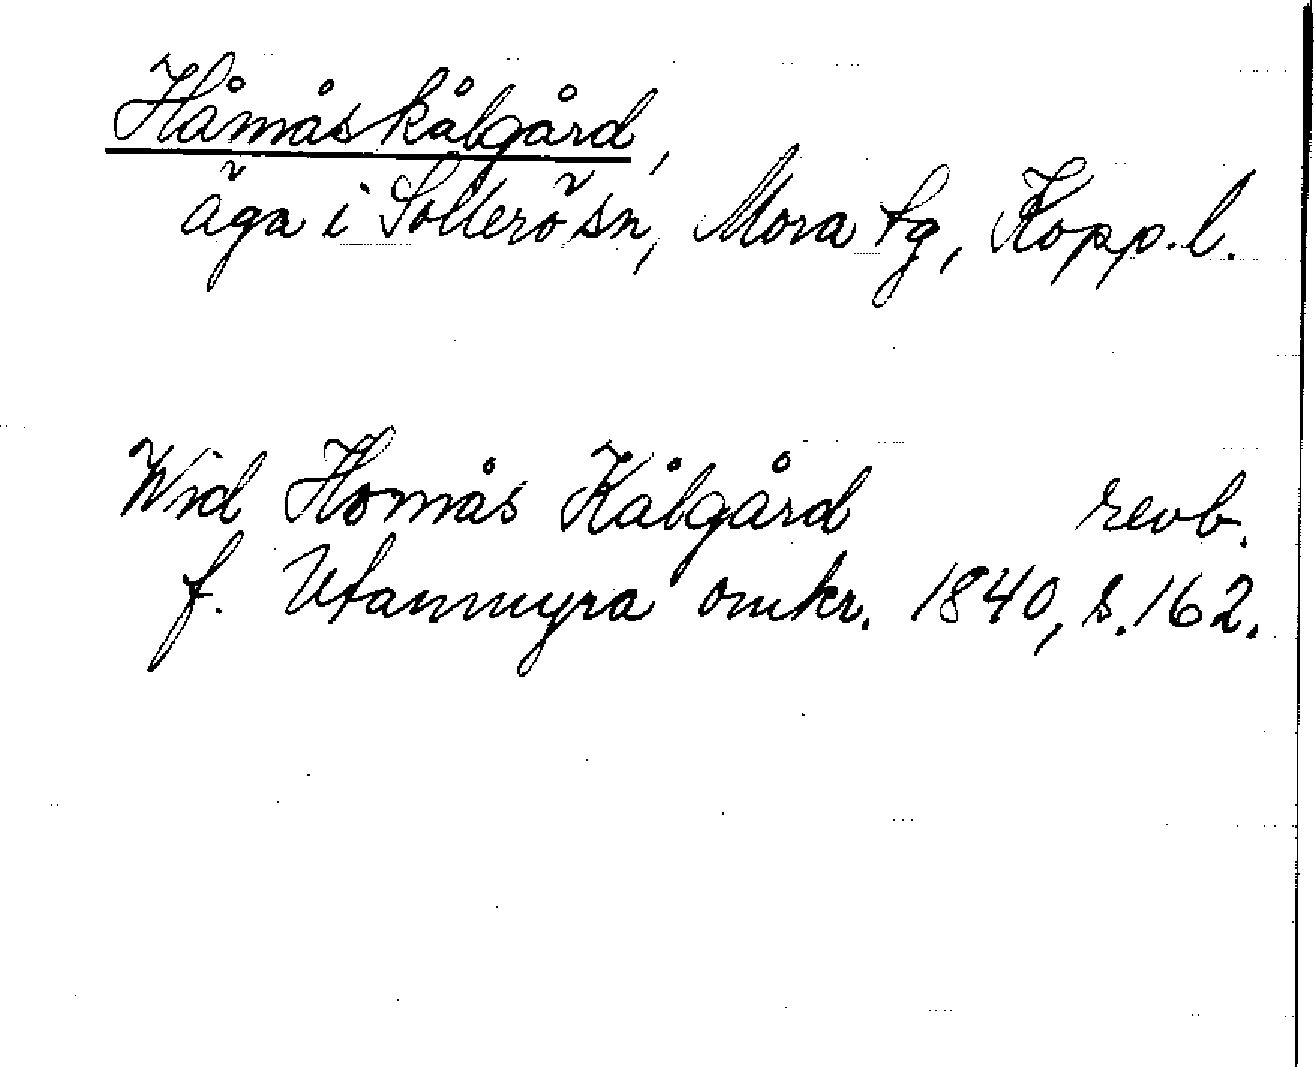 Håmåskålgård,
äga i Sollerö sn, Mora tg, Kopp.l.
Wid Homås Kålgård revb.
f. Utanmyra omkr. 1840, s.162.